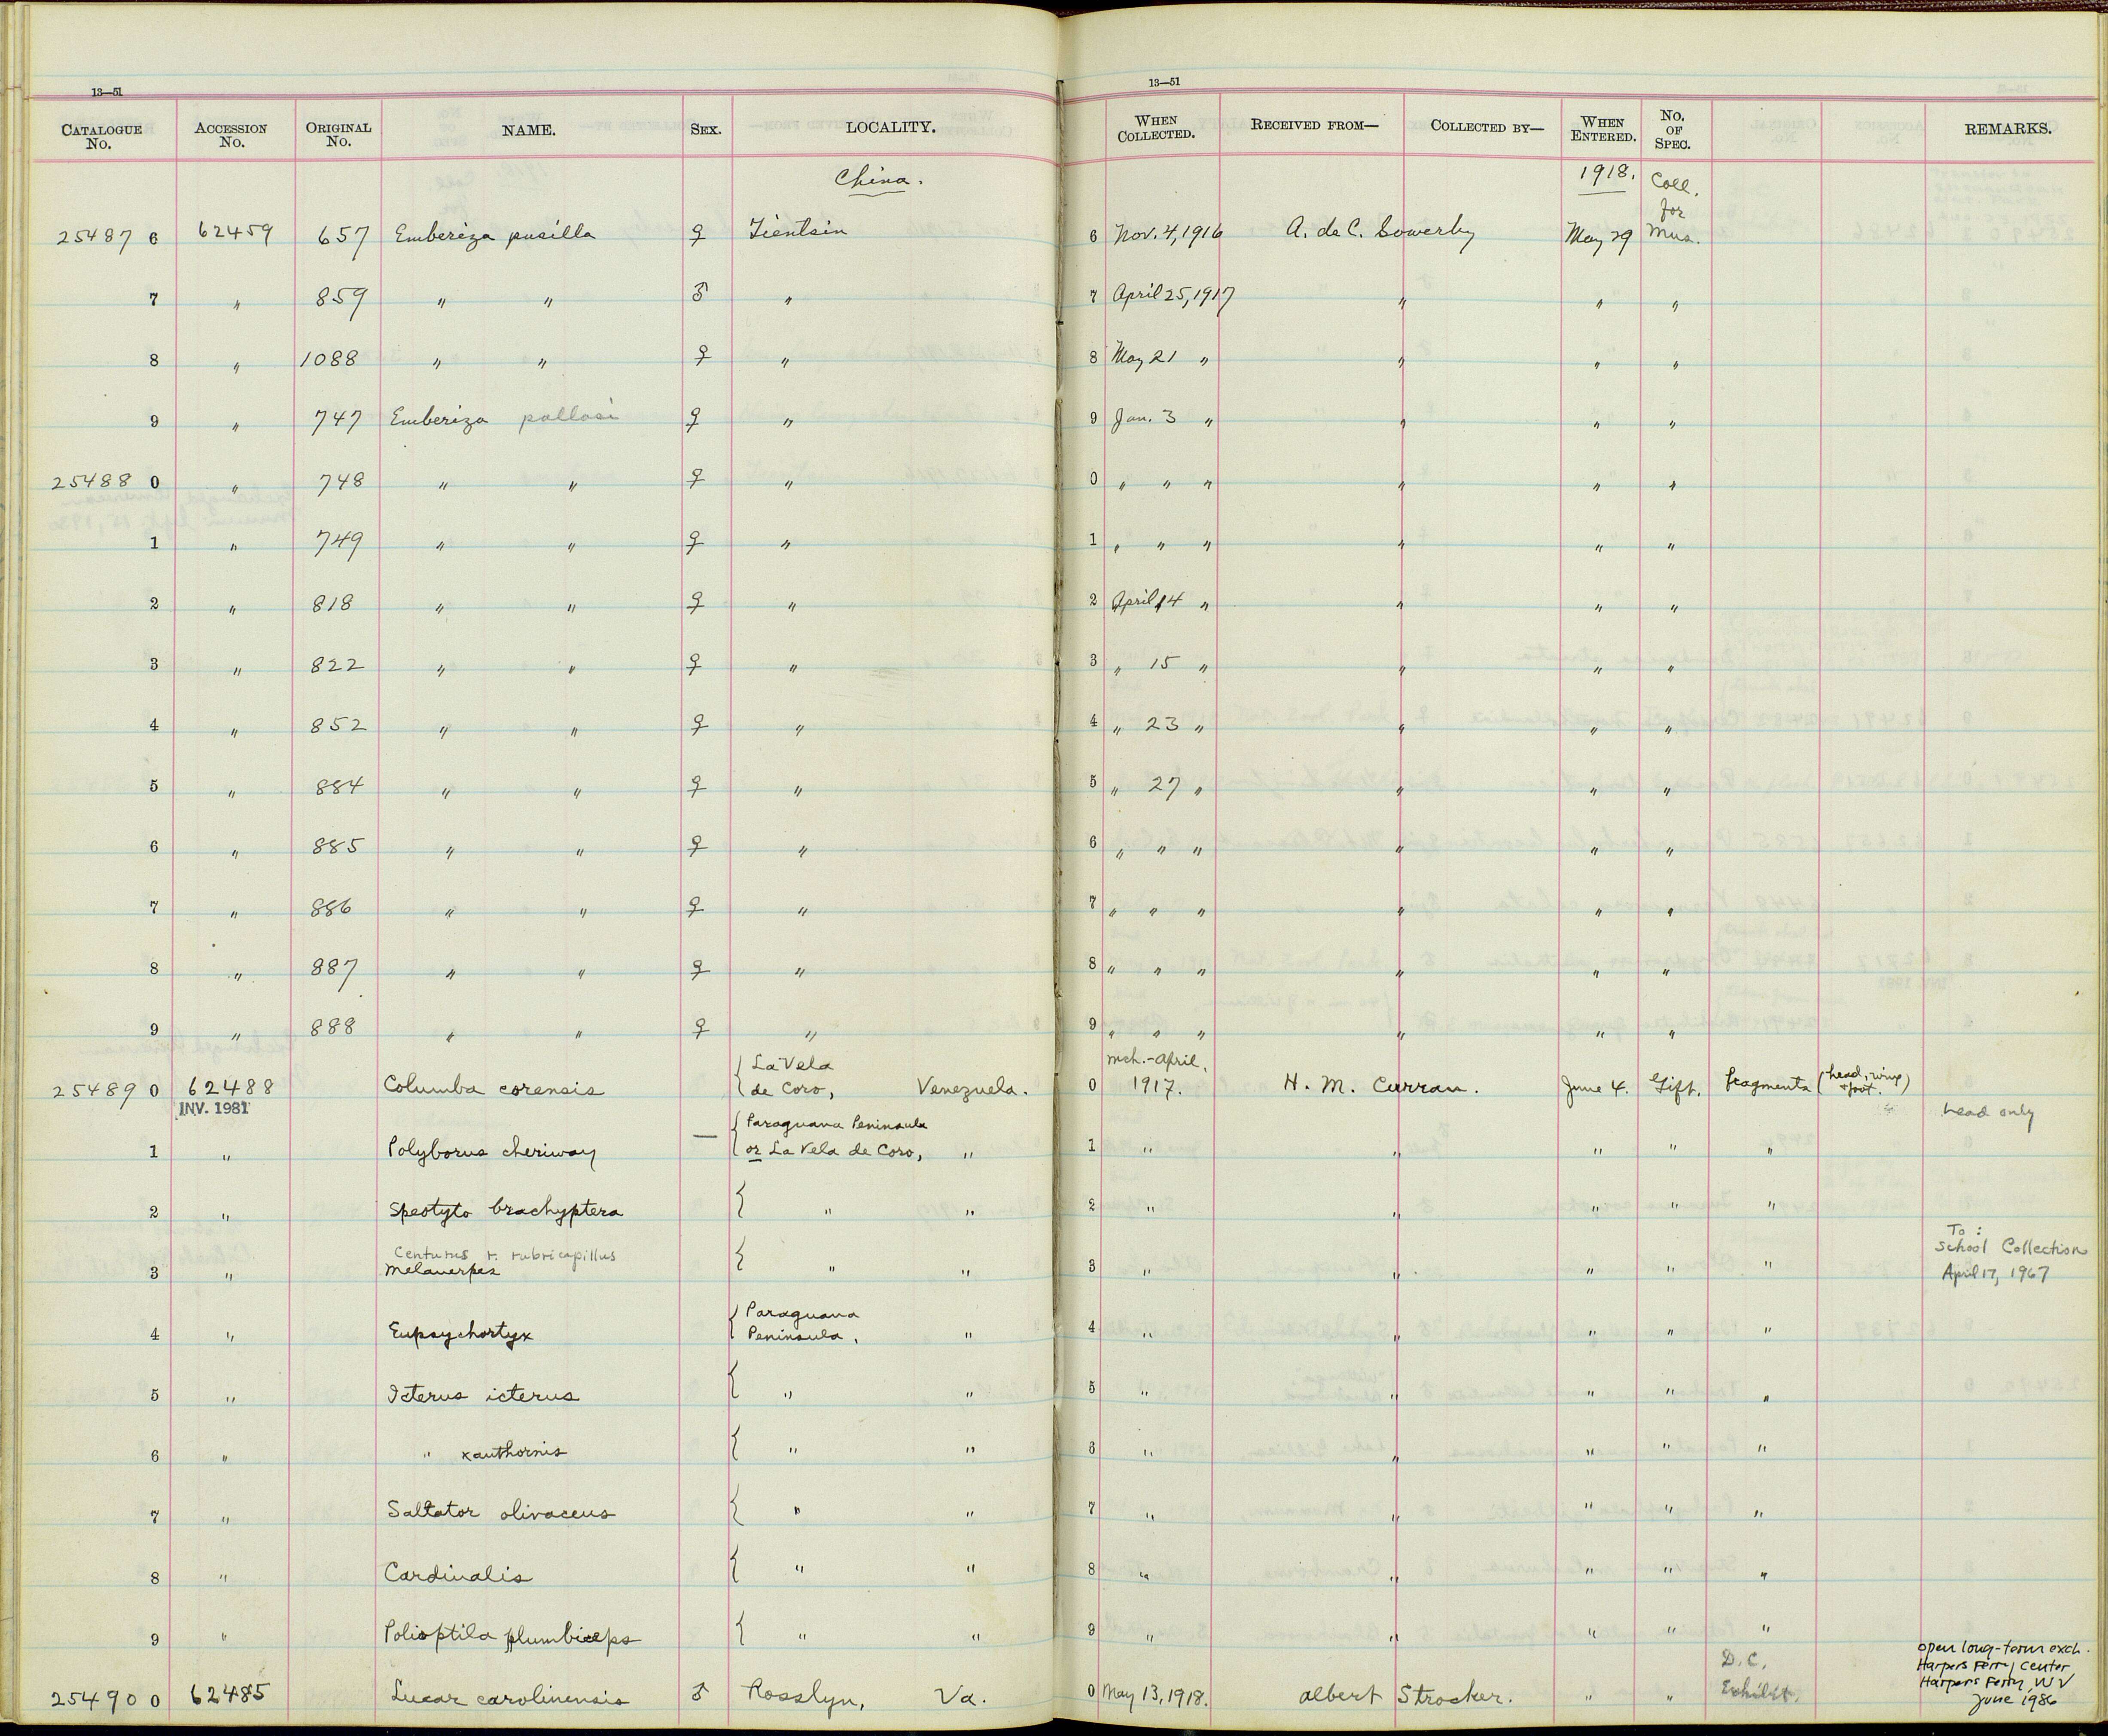 13—51
13—51
CATALOGUE No. ACCESSION No. ORIGINAL No. NAME. SEX. LOCALITY. WHEN COLLECTED. RECEIVED FROM— COLLECTED BY— WHEN ENTERED. No. OF SPEC. REMARKS.
China. 1918. Coll. for
25487 6 62459 657 Emberiza pusilla ♀ Tientsin 6 Nov. 4, 1916 A. de C. Sowerby May 29 Mus.
7 " 859 " " ♂ " 7 April 25, 1917 " " "
8 " 1088 " " ♀ " 8 May 21 " " " "
9 " 747 Emberiza pallasi ♀ " 9 Jan. 3 " " " "
25488 0 " 748 " " ♀ " 0 " " " " " "
1 " 749 " " ♀ " 1 " " " " " "
2 " 818 " " ♀ " 2 April 14 " " " "
3 " 822 " " ♀ " 3 " 15 " " " "
4 " 852 " " ♀ " 4 " 23 " " " "
5 " 884 " " ♀ " 5 " 27 " " " "
6 " 885 " " ♀ " 6 " " " " " "
7 " 886 " " ♀ " 7 " " " " " "
8 " 887 " " ♀ " 8 " " " " " "
9 " 888 " " ♀ " 9 " " " " " "
{ La Vela mch.-April,
25489 0 62488 Columba corensis de Coro, Venezuela. 0 1917. H. M. Curran. June 4. Gift. fragments (head, wing & foot.)
INV. 1981 head only
{ Paraguana Peninsula
1 " Polyborus cheriway — or La Vela de Coro, " 1 " " " " "
2 " Speotyto brachyptera { " " 2 " " " " "
To:
Centurus r. rubricapillus School Collection
3 " Melanerpes { " " 3 " " " " " April 17, 1967
{ Paraguana
4 " Eupsychortyx Peninsula, " 4 " " " " "
5 " Icterus icterus { " " 5 " " " " "
6 " " xanthornis { " " 6 " " " " "
7 " Saltator olivaceus { " " 7 " " " " "
8 " Cardinalis { " " 8 " " " " "
9 " Polioptila plumbiceps { " " 9 " " " " "
open long-term exch.
D.C. Harpers Ferry Center
25490 0 62485 Lucar carolinensis ♂ Rosslyn, Va. 0 May 13, 1918. Albert Strocker. " " Exhibit. Harpers Ferry, WV
June 1986